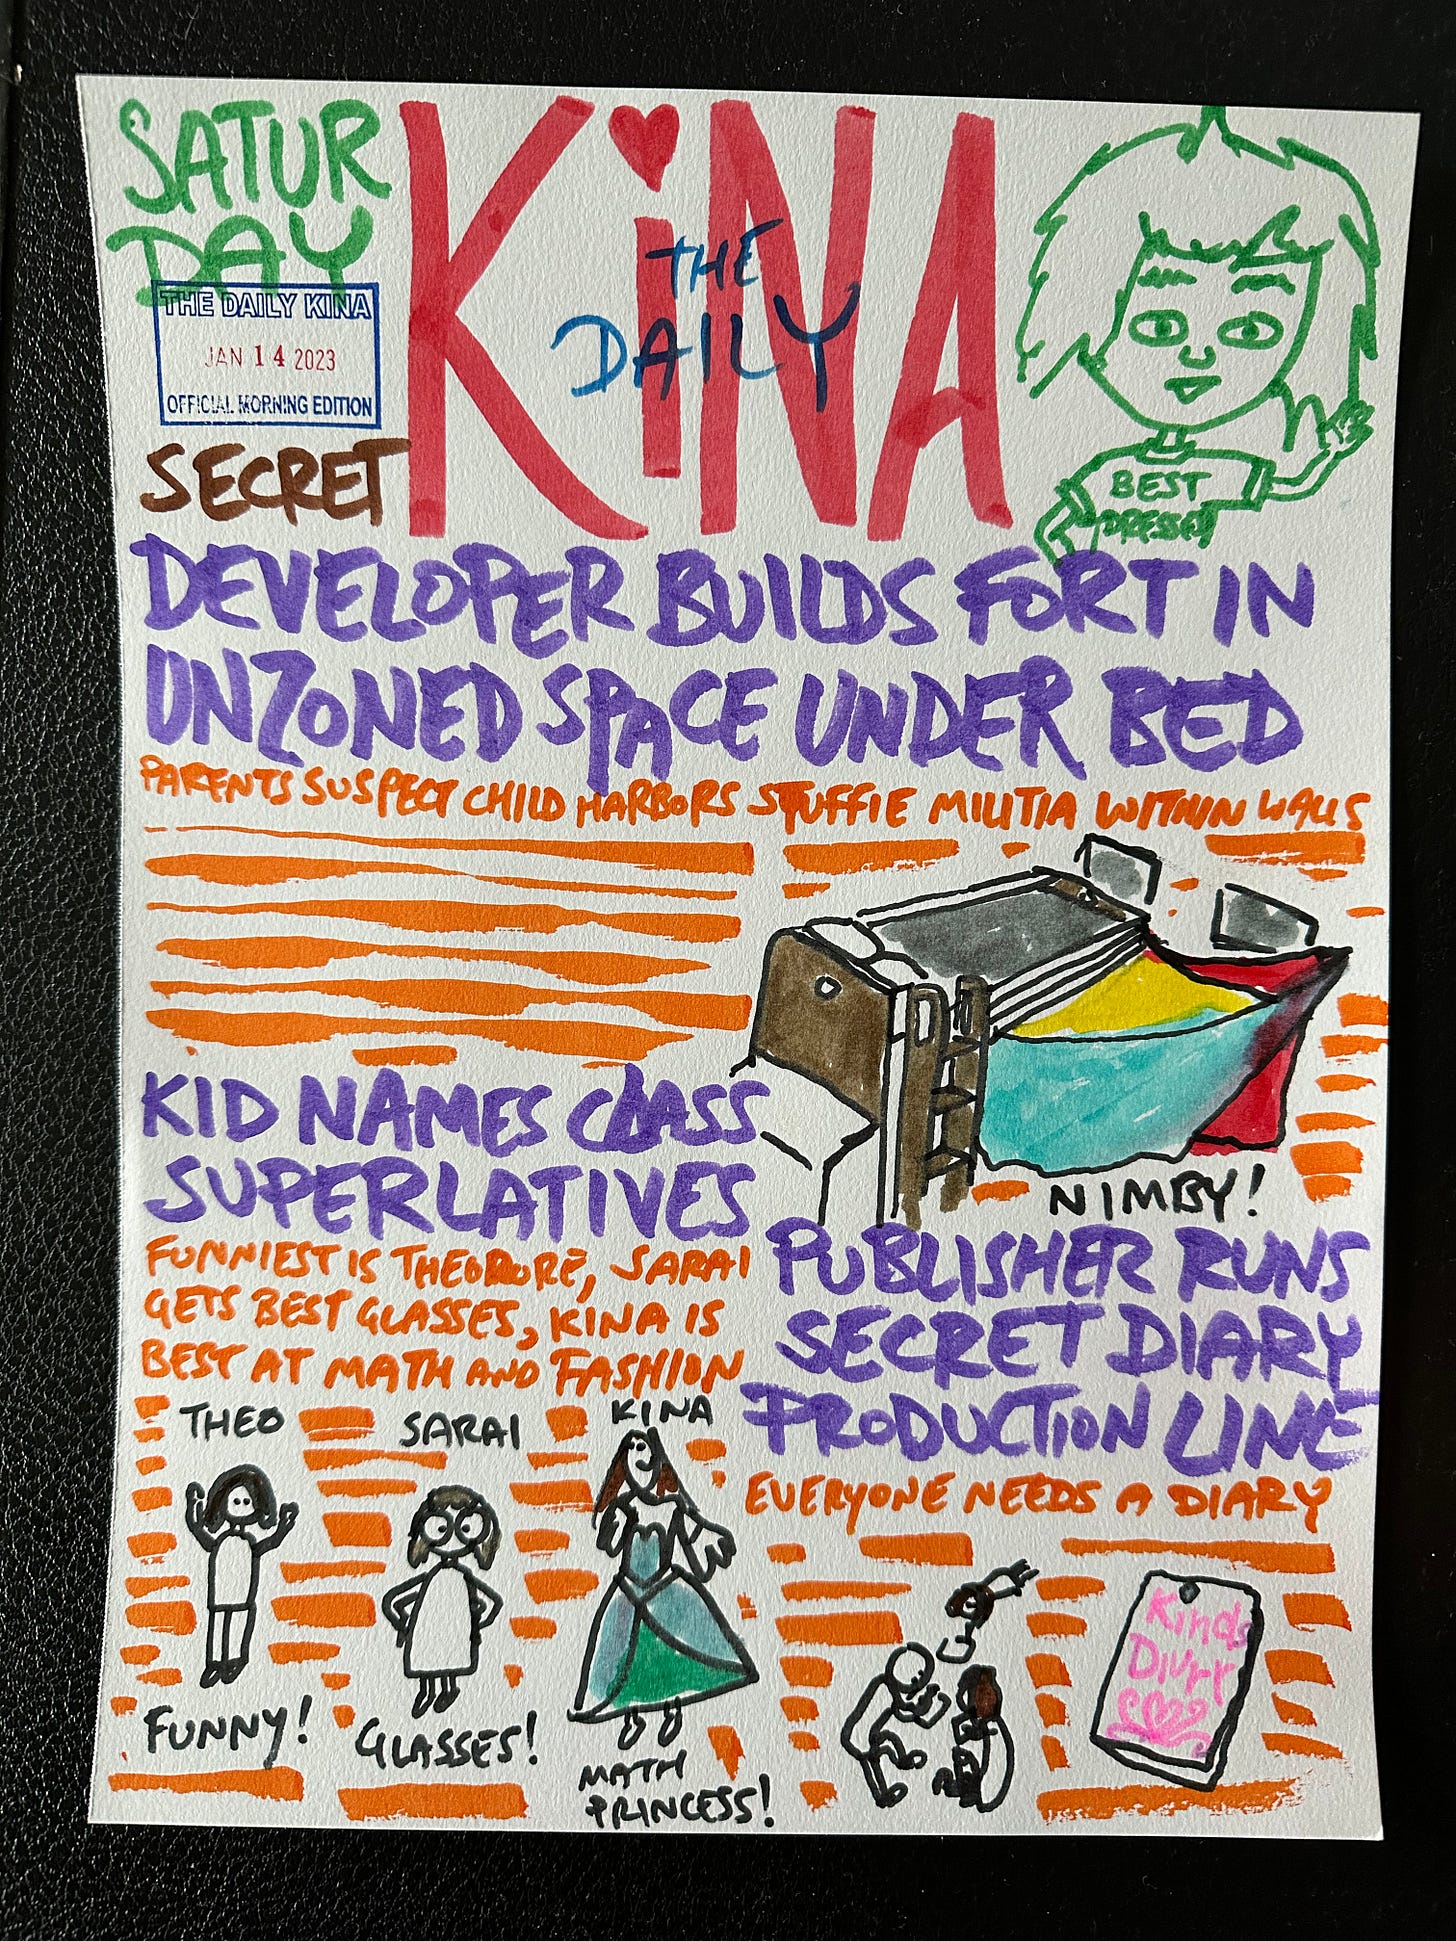 SATUR
DAY
THE DAILY KINA
JAN 14 2023
OFFICIAL MORNING EDITION
THE
DAILY
KiNA
BEST
DRESSED
SECRET
DEVELOPER BUILDS FORT IN
UNZONED SPACE UNDER BED
PARENTS SUSPECT CHILD HARBORS STUFFIE MILITIA WITHIN WALLS
NIMBY!
KID NAMES CLASS
SUPERLATIVES
FUNNIEST IS THEODORE, SARAI
GETS BEST GLASSES, KINA IS
BEST AT MATH AND FASHION
THEO
SARAI
KINA
FUNNY!
GLASSES!
MATH
PRINCESS!
PUBLISHER RUNS
SECRET DIARY
PRODUCTION LINE
EVERYONE NEEDS A DIARY
Kinds
Diury